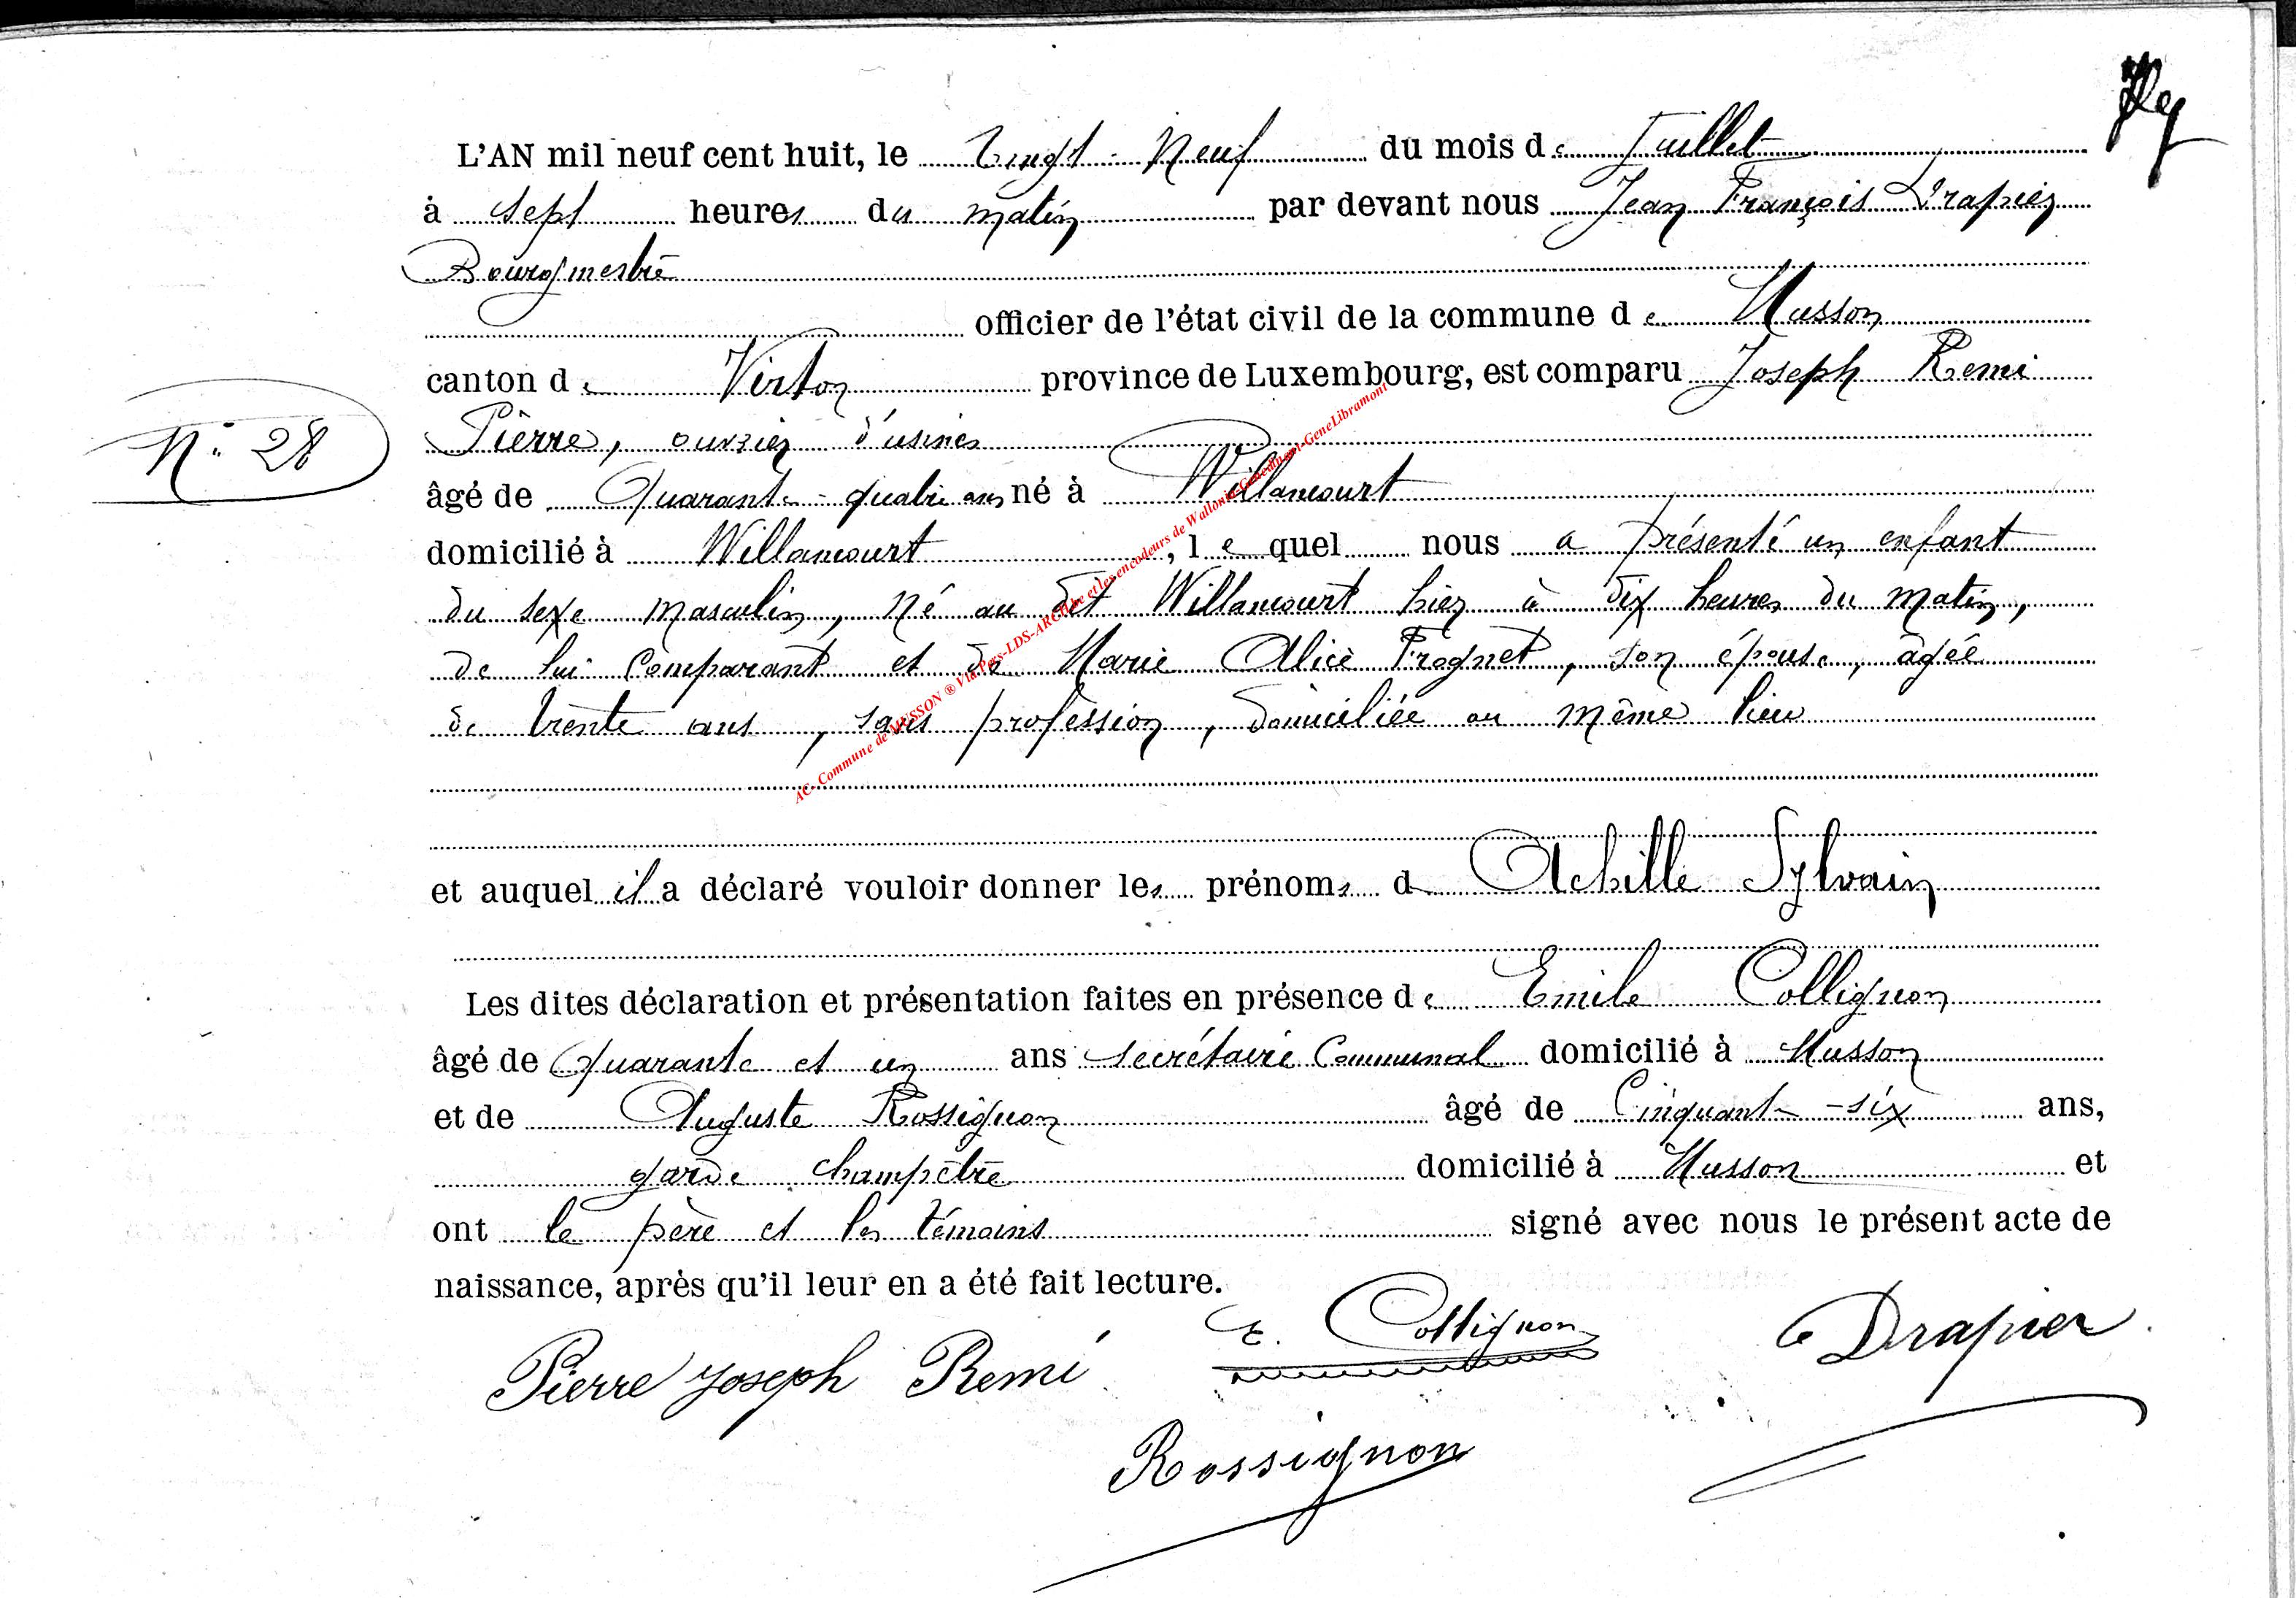 L'AN mil neuf cent huit, le Vingt-Neuf du mois de Juillet
à sept heures du matin par devant nous Jean François Drapier
Bourgmestre
officier de l'état civil de la commune de Musson
canton de Virton province de Luxembourg, est comparu Joseph Remi
N° 28
Pierre, ouvrier d'usines
âgé de Quarante-quatre ans né à Willancourt
domicilié à Willancourt, lequel nous a présenté un enfant
du sexe masculin, né au dit Willancourt hier à dix heures du matin,
de lui Comparant et de Marie Alice Frognet, son épouse, âgée
de trente ans, sans profession, domiciliée au même lieu
AC-Commune de MUSSON ® Via Pers-LDS-ARCH.be et les encodeurs de Wallonie-Genedinant-GeneLibramont
et auquel il a déclaré vouloir donner les prénoms d Achille Sylvain
Les dites déclaration et présentation faites en présence de Emile Collignon
âgé de Quarante et un ans secrétaire Communal domicilié à Musson
et de Auguste Rossignon âgé de Cinquante-six ans,
garde champêtre domicilié à Musson et
ont le père et les témoins signé avec nous le présent acte de
naissance, après qu'il leur en a été fait lecture.
E. Collignon
Drapier
Pierre Joseph Remi
Rossignon